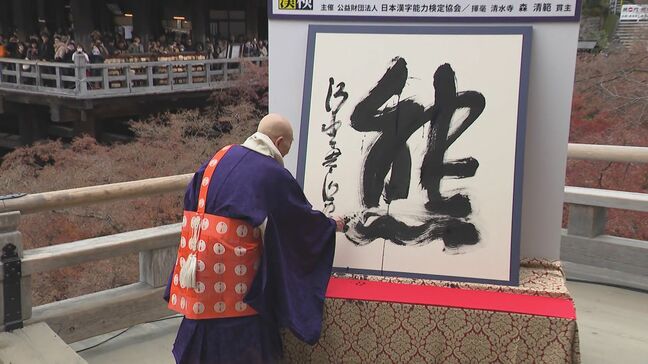 漢
主催 公益財団法人 日本漢字能力検定協会／揮毫 清水寺 森 清範 貫主
熊